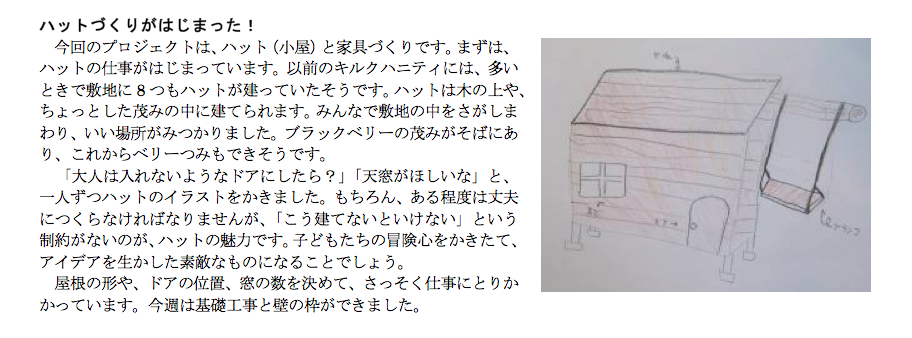 ハットづくりがはじまった！
　今回のプロジェクトは、ハット（小屋）と家具づくりです。まずは、
ハットの仕事がはじまっています。以前のキルクハニティには、多い
ときで敷地に８つもハットが建っていたそうです。ハットは木の上や、
ちょっとした茂みの中に建てられます。みんなで敷地の中をさがしま
わり、いい場所がみつかりました。ブラックベリーの茂みがそばにあ
り、これからベリーつみもできそうです。
　「大人は入れないようなドアにしたら？」「天窓がほしいな」と、
一人ずつハットのイラストをかきました。もちろん、ある程度は丈夫
につくらなければなりませんが、「こう建てないといけない」という
制約がないのが、ハットの魅力です。子どもたちの冒険心をかきたて、
アイデアを生かした素敵なものになることでしょう。
　屋根の形や、ドアの位置、窓の数を決めて、さっそく仕事にとりか
かっています。今週は基礎工事と壁の枠ができました。